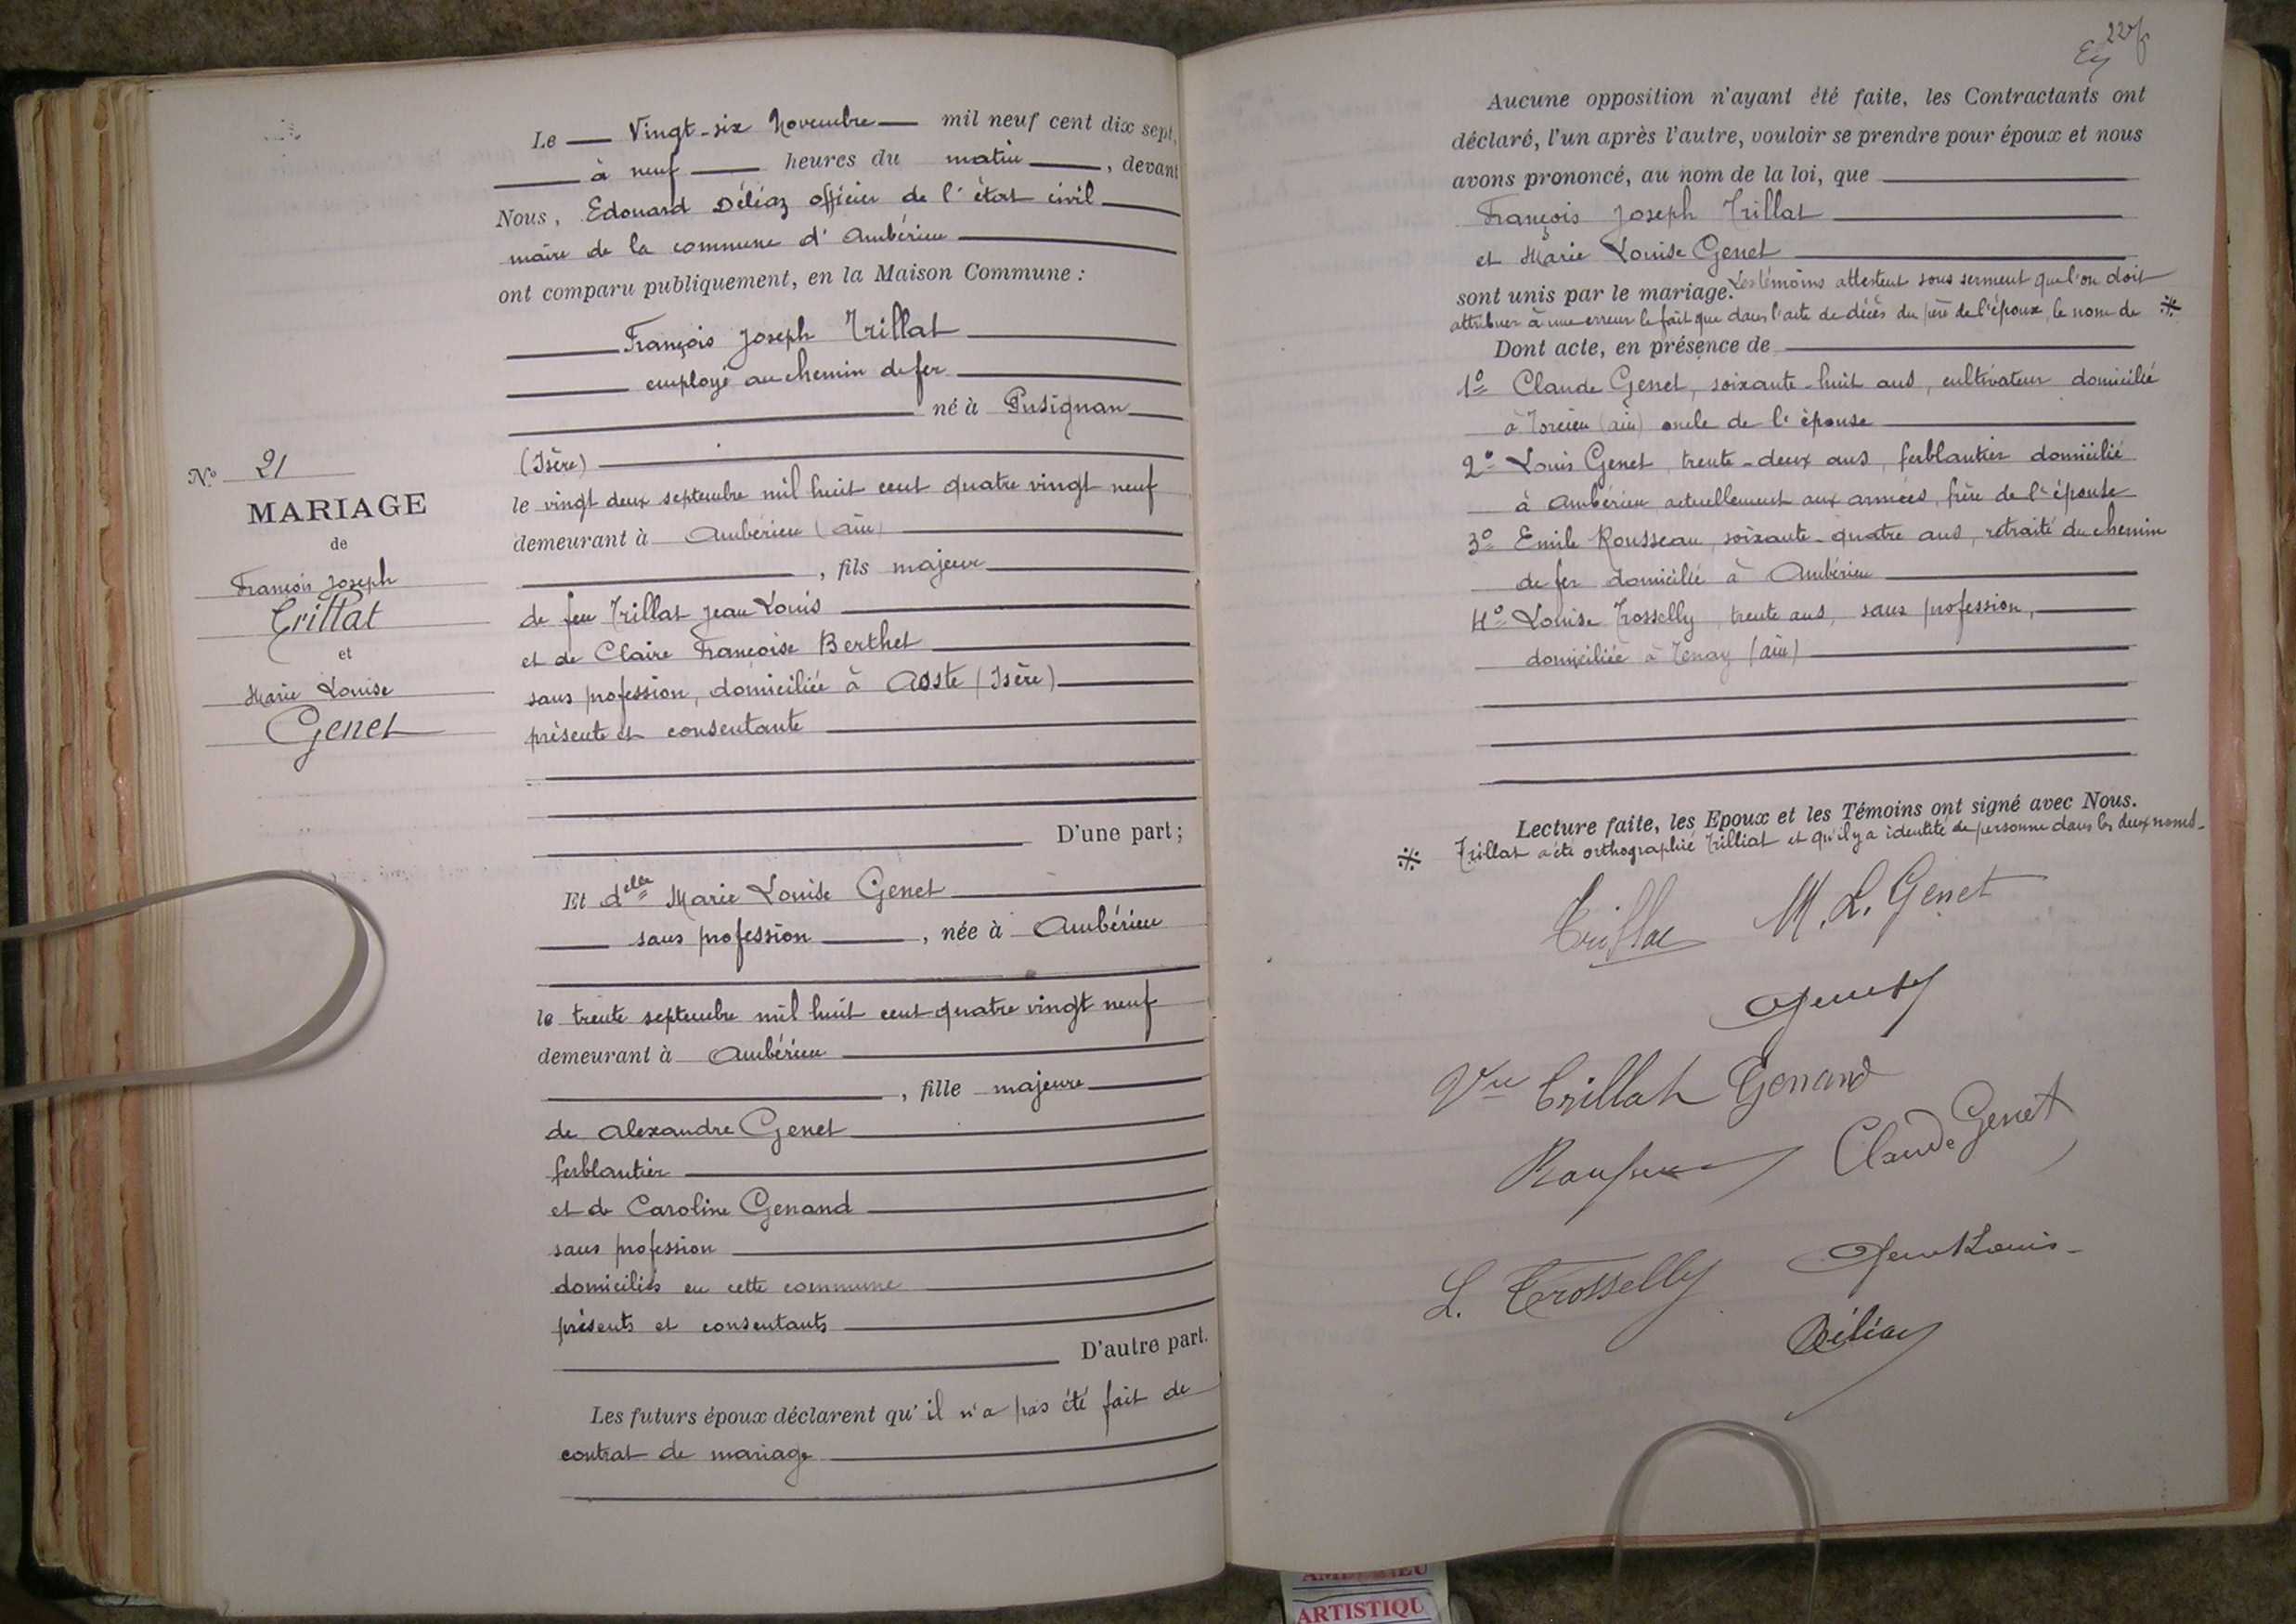 Le Vingt-six Novembre mil neuf cent dix sept,
à neuf heures du matin, devant
Nous, Edouard Déliaz officier de l'état civil
maire de la commune d'Ambérieu
ont comparu publiquement, en la Maison Commune :
François Joseph Trillat
employé au chemin de fer
né à Pusignan
(Isère)
le vingt deux septembre mil huit cent quatre vingt neuf
demeurant à Ambérieu (Ain)
, fils majeur
de feu Trillat Jean Louis
et de Claire Françoise Berthet
sans profession, domiciliée à Aoste (Isère)
présente et consentante
D'une part ;
N° 21
MARIAGE
de
François Joseph
Trillat
et
Marie Louise
Genet
Et delle Marie Louise Genet
sans profession, née à Ambérieu
le trente septembre mil huit cent quatre vingt neuf
demeurant à Ambérieu
, fille majeure
de Alexandre Genet
ferblantier
et de Caroline Genand
sans profession
domiciliés en cette commune
présents et consentants
D'autre part.
Les futurs époux déclarent qu'il n'a pas été fait de
contrat de mariage
Aucune opposition n'ayant été faite, les Contractants ont
déclaré, l'un après l'autre, vouloir se prendre pour époux et nous
avons prononcé, au nom de la loi, que
François Joseph Trillat
et Marie Louise Genet
sont unis par le mariage. Les témoins attestent sous serment que l'on doit
attribuer à une erreur le fait que dans l'acte de décès du père de l'époux, le nom de ※
Dont acte, en présence de
1° Claude Genet, soixante-huit ans, cultivateur domicilié
à Torcieu (Ain) oncle de l'épouse
2° Louis Genet, trente-deux ans, ferblantier domicilié
à Ambérieu actuellement aux armées, frère de l'épouse
3° Emile Rousseau, soixante-quatre ans, retraité du chemin
de fer domicilié à Ambérieu
4° Louise Trosselly, trente ans, sans profession,
domiciliée à Tenay (Ain)
Lecture faite, les Epoux et les Témoins ont signé avec Nous.
※ Trillat a été orthographié Trilliat et qu'il y a identité de personne dans les deux noms.
Trillat M. L. Genet
Vve Trillat Genand
Claude Genet
L. Trosselly Genet Louis
Déliaz
ARTISTIQU